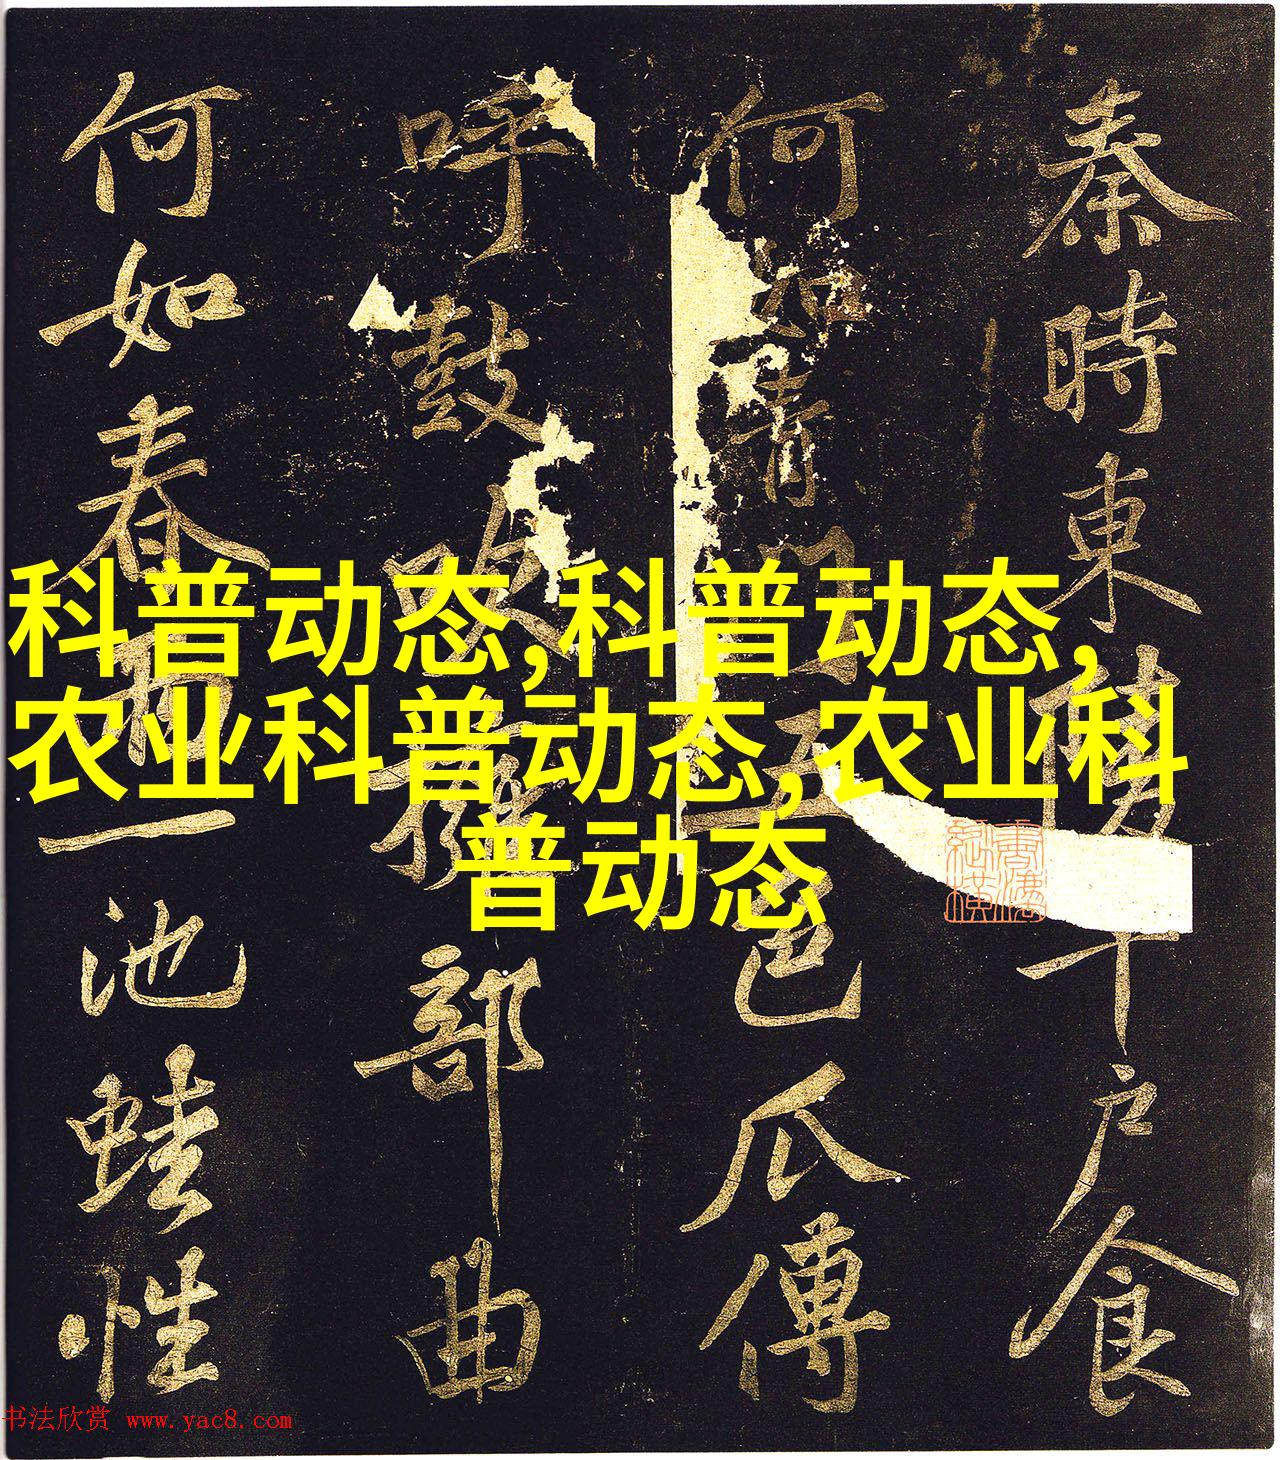 科普动态,科普动态,
农业科普动态,农业科
普动态
秦時東陵千戶食
何如青門五色瓜傳
呼鼓吹擁部曲
何如春雨一池蛙性
书法欣赏 www.yac8.com